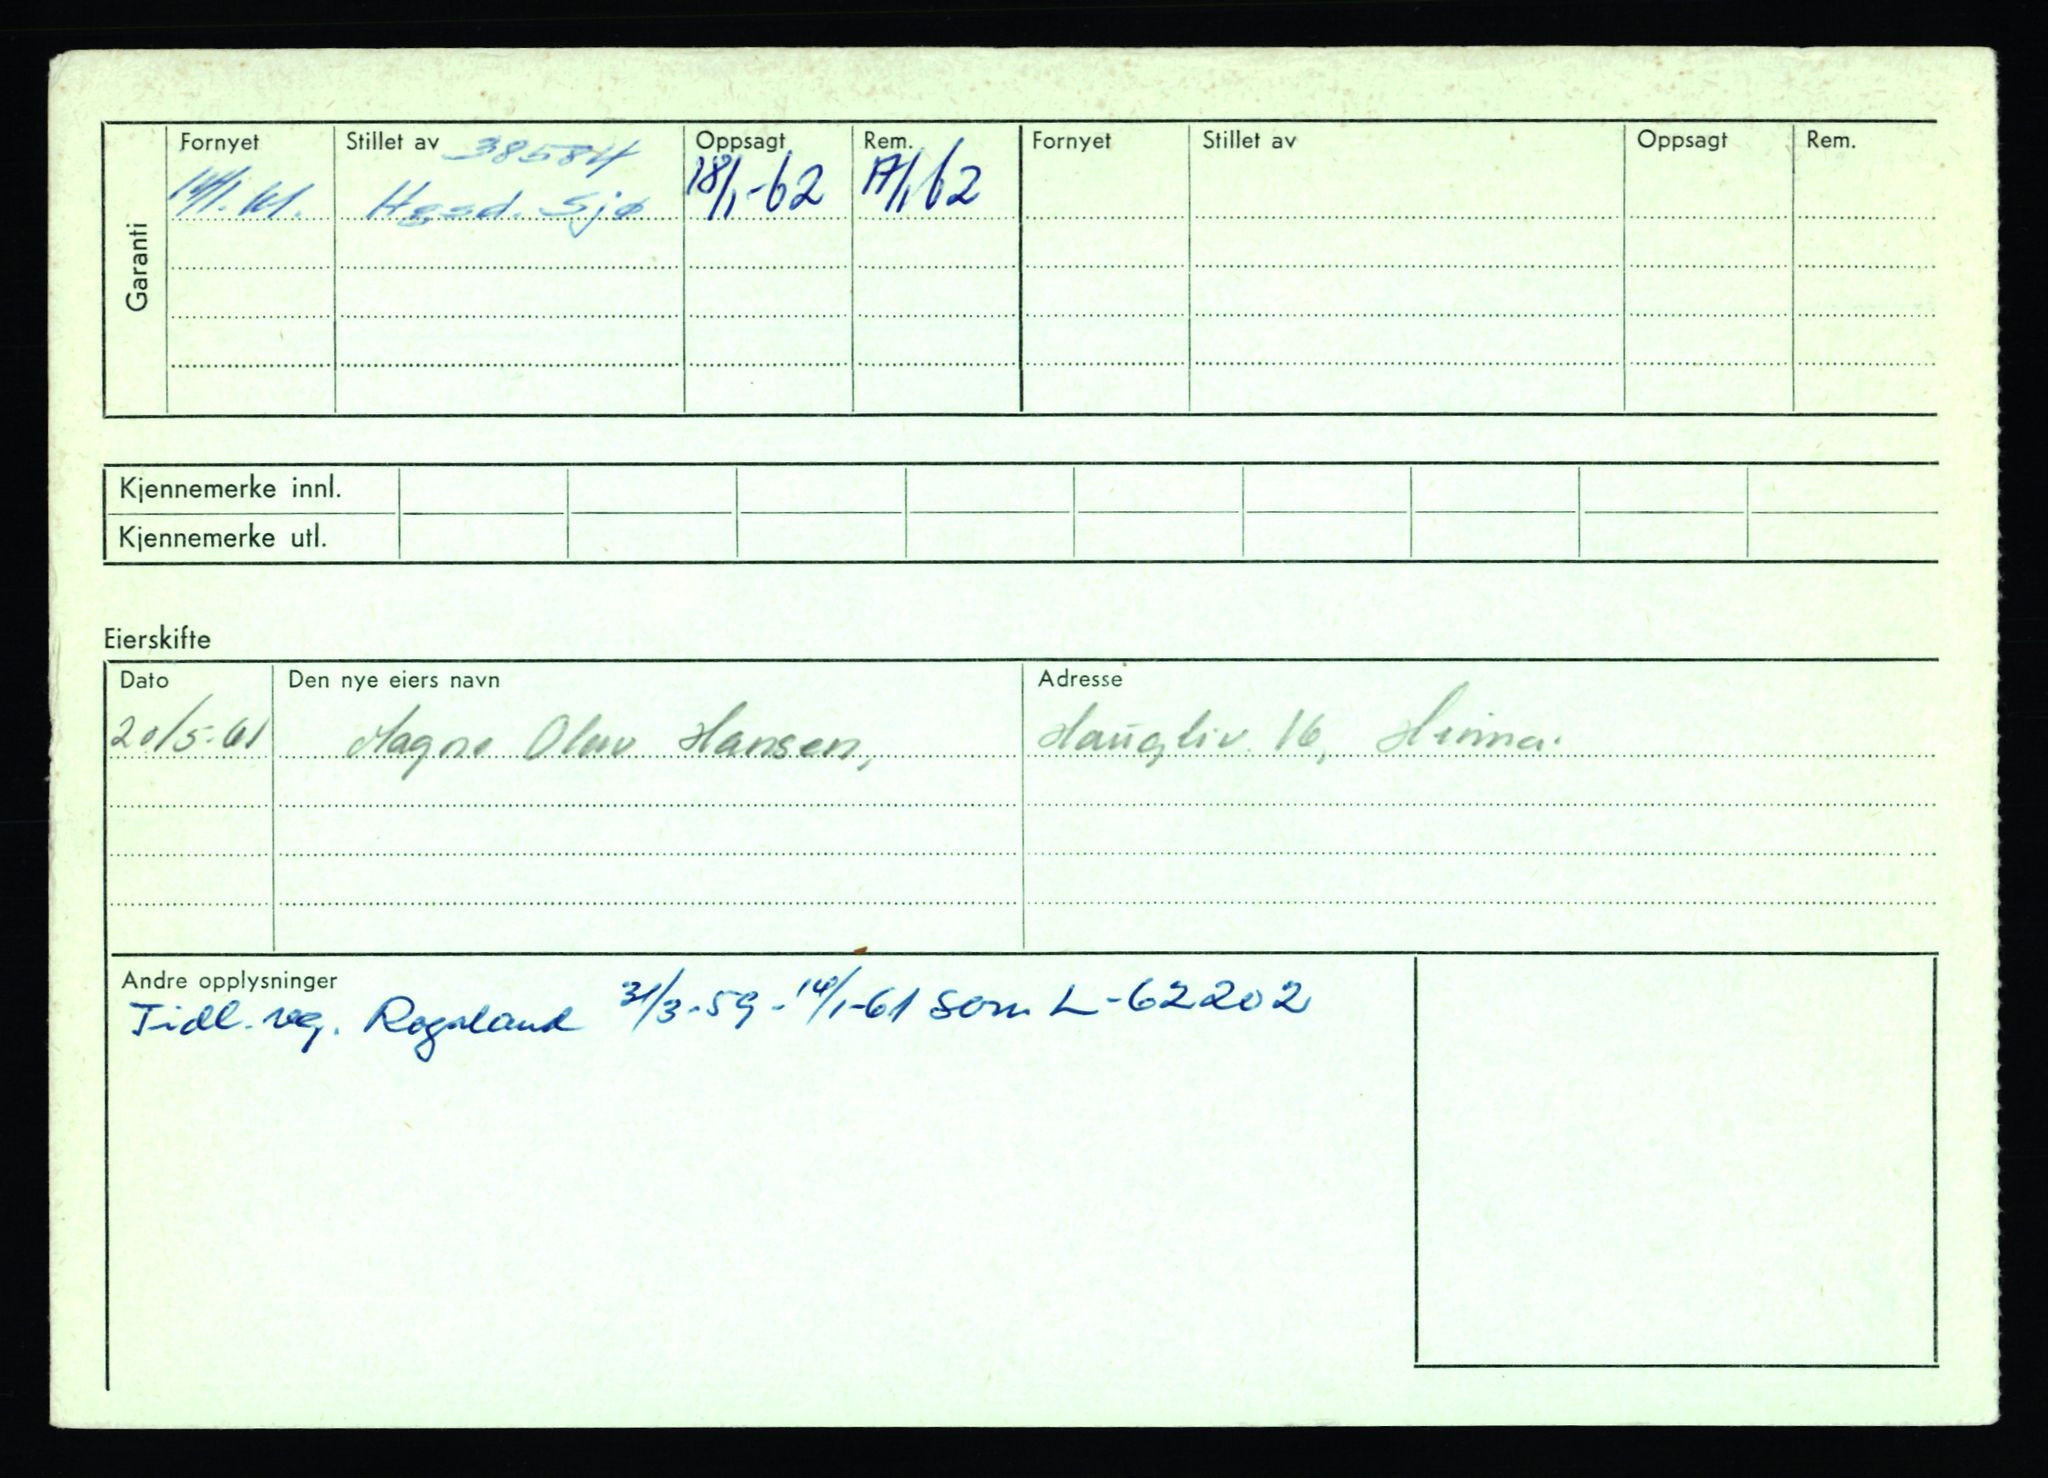 Garanti
Fornyet Stillet av 38584 Oppsagt Rem. Fornyet Stillet av Oppsagt Rem.
14/1.61. Hgsd. Sjø 18/1-62 17/1 62
Kjennemerke innl.
Kjennemerke utl.
Eierskifte
Dato Den nye eiers navn Adresse
20/5-61 Magne Olav Hansen, Haugliv. 16,
Andre opplysninger
Tidl. reg. Rogaland 31/3-59-14/1-61 som L-62202